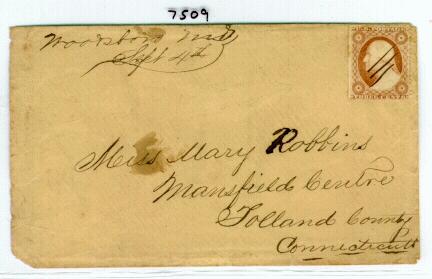 7509
Woodsboro Md
Sept 4th
U.S. POSTAGE
THREE CENTS
Miss Mary Robbins
Mansfield Centre
Tolland County
Connecticut